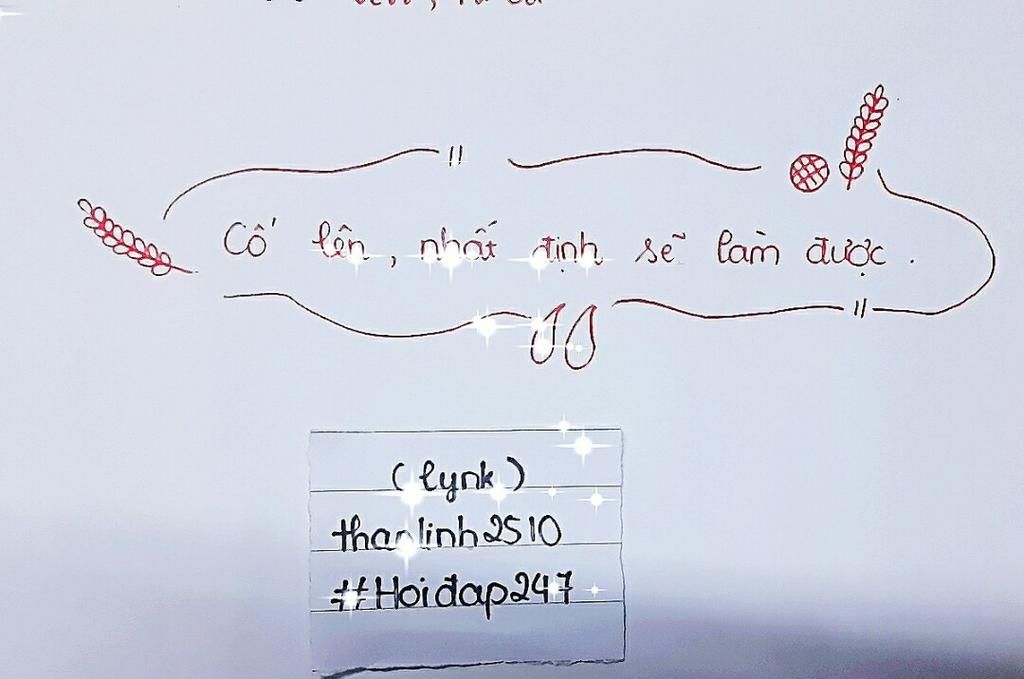 Cố lên, nhất định sẽ làm được.
(lynk)
thaolinh2510
#Hoiđap247